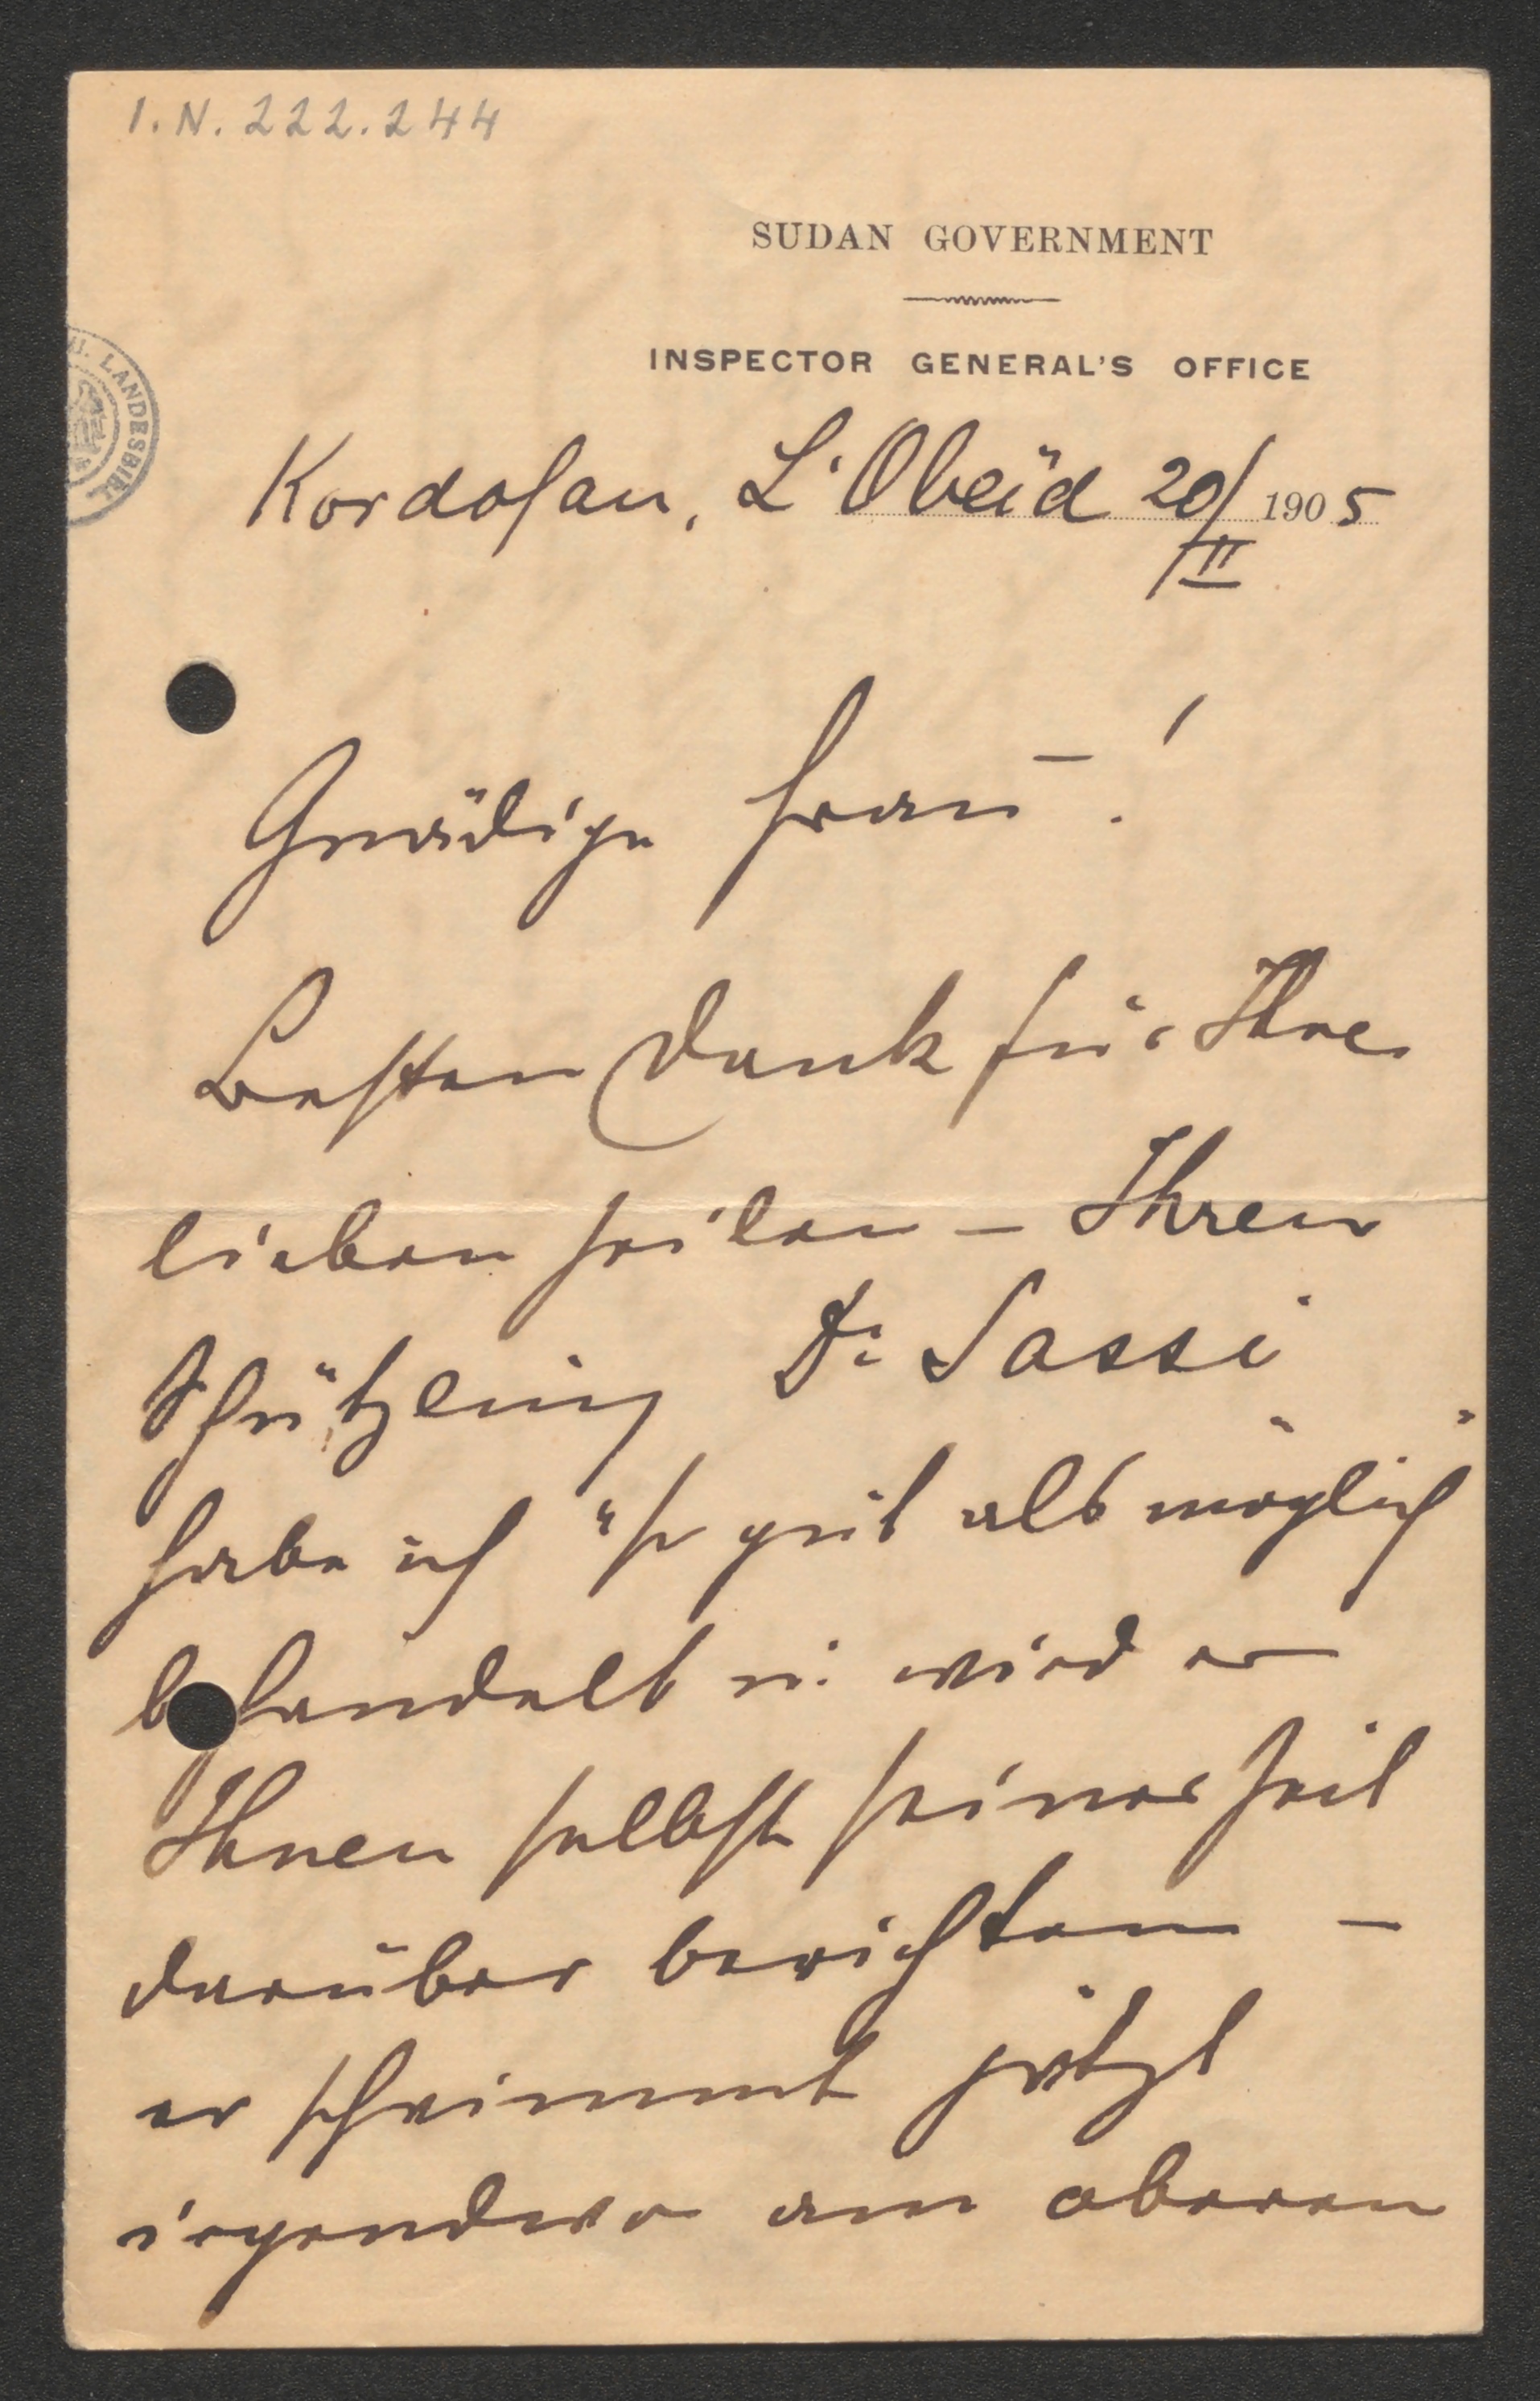 I.N. 222.244
SUDAN GOVERNMENT
INSPECTOR GENERAL'S OFFICE
LANDESBIBL
Kordofan, L'Obeïd 20/II 1905
Gnädige Frau!
Besten Dank für Ihre
lieben Zeilen – Ihren
Schützling Dr Sassi
habe ich "so gut als möglich"
behandelt u. wird er
Ihnen selbst seinerzeit
darüber berichten –
er schwimmt jetzt
irgendwo am oberen